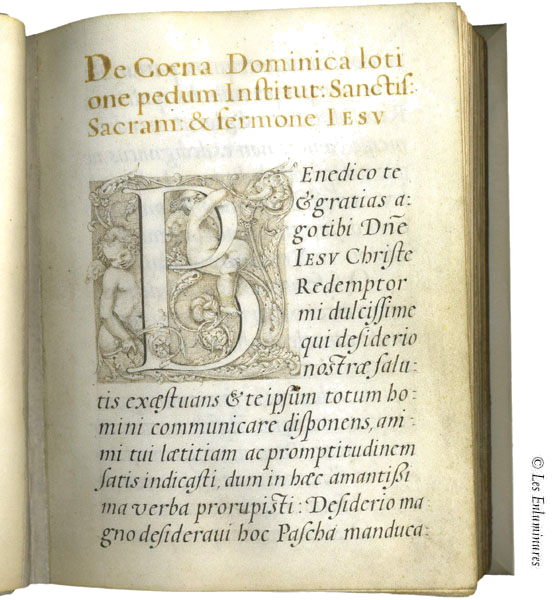 De Cœna Dominica loti
one pedum Institut: Sanctiſ:
Sacram: & ſermone IESV
BEnedico te
& gratias a:
go tibi Dñe
IESV Chriſte
Redemptor
mi dulciſſime
qui deſiderio
noſtræ ſalu:
tis exæſtuans & te ipſũm totum ho:
mini communicare diſponens, ani:
mi tui lætitiam ac promptitudinem
ſatis indicaſti, dum in hæc amantiſſi
ma verba prorupiſti: Deſiderio ma
gno deſideraui hoc Paſcha manduca:
© Les Enluminures